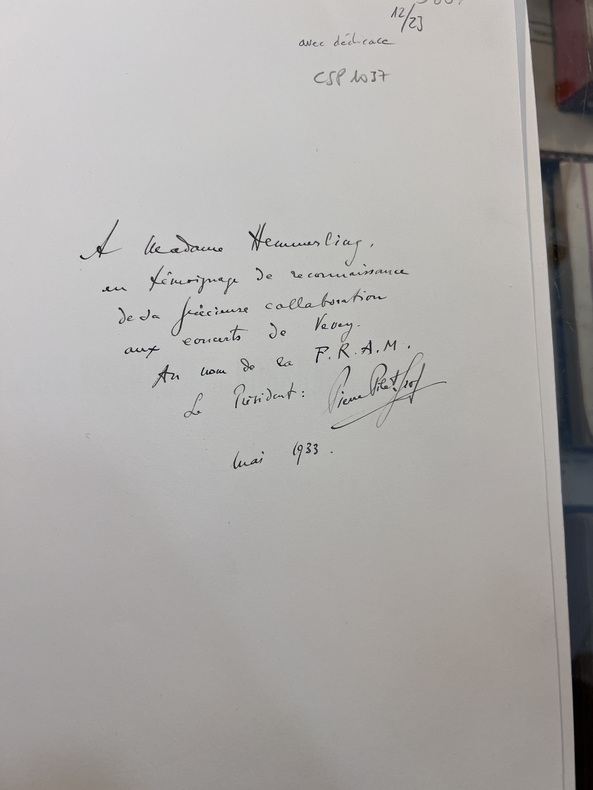 12/23
avec dédicace
CSP 1037
A Madame Hemmerling,
en témoignage de reconnaissance
de sa précieuse collaboration
aux concerts de Vevey.
Au nom de la F.R.A.M.
Le Président: Pierre
mai 1933.